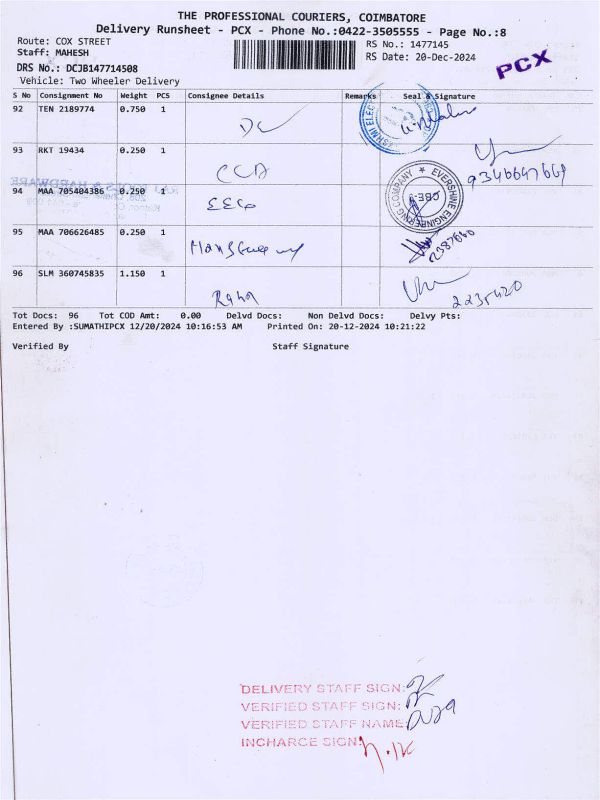 THE PROFESSIONAL COURIERS, COIMBATORE
Delivery Runsheet - PCX - Phone No.:0422-3505555 - Page No.:8
Route: COX STREET
RS No.: 1477145
Staff: MAHESH
RS Date: 20-Dec-2024
PCX
DRS No.: DCJB147714508
Vehicle: Two Wheeler Delivery
S No Consignment No Weight PCS Consignee Details Remarks Seal & Signature
92 TEN 2189774 0.750 1
DC
93 RKT 19434 0.250 1
CCD
HARDWARE
EVERSHINE ENGINEERING COMPANY
CBE-9
94 MAA 705404386 0.250 1
95 MAA 706626485 0.250 1
96 SLM 360745835 1.150 1
2235420
Tot Docs: 96 Tot COD Amt: 0.00 Delvd Docs: Non Delvd Docs: Delvy Pts:
Entered By :SUMATHIPCX 12/20/2024 10:16:53 AM Printed On: 20-12-2024 10:21:22
Verified By Staff Signature
DELIVERY STAFF SIGN:
VERIFIED STAFF SIGN:
VERIFIED STAFF NAME:
INCHARCE SIGN: